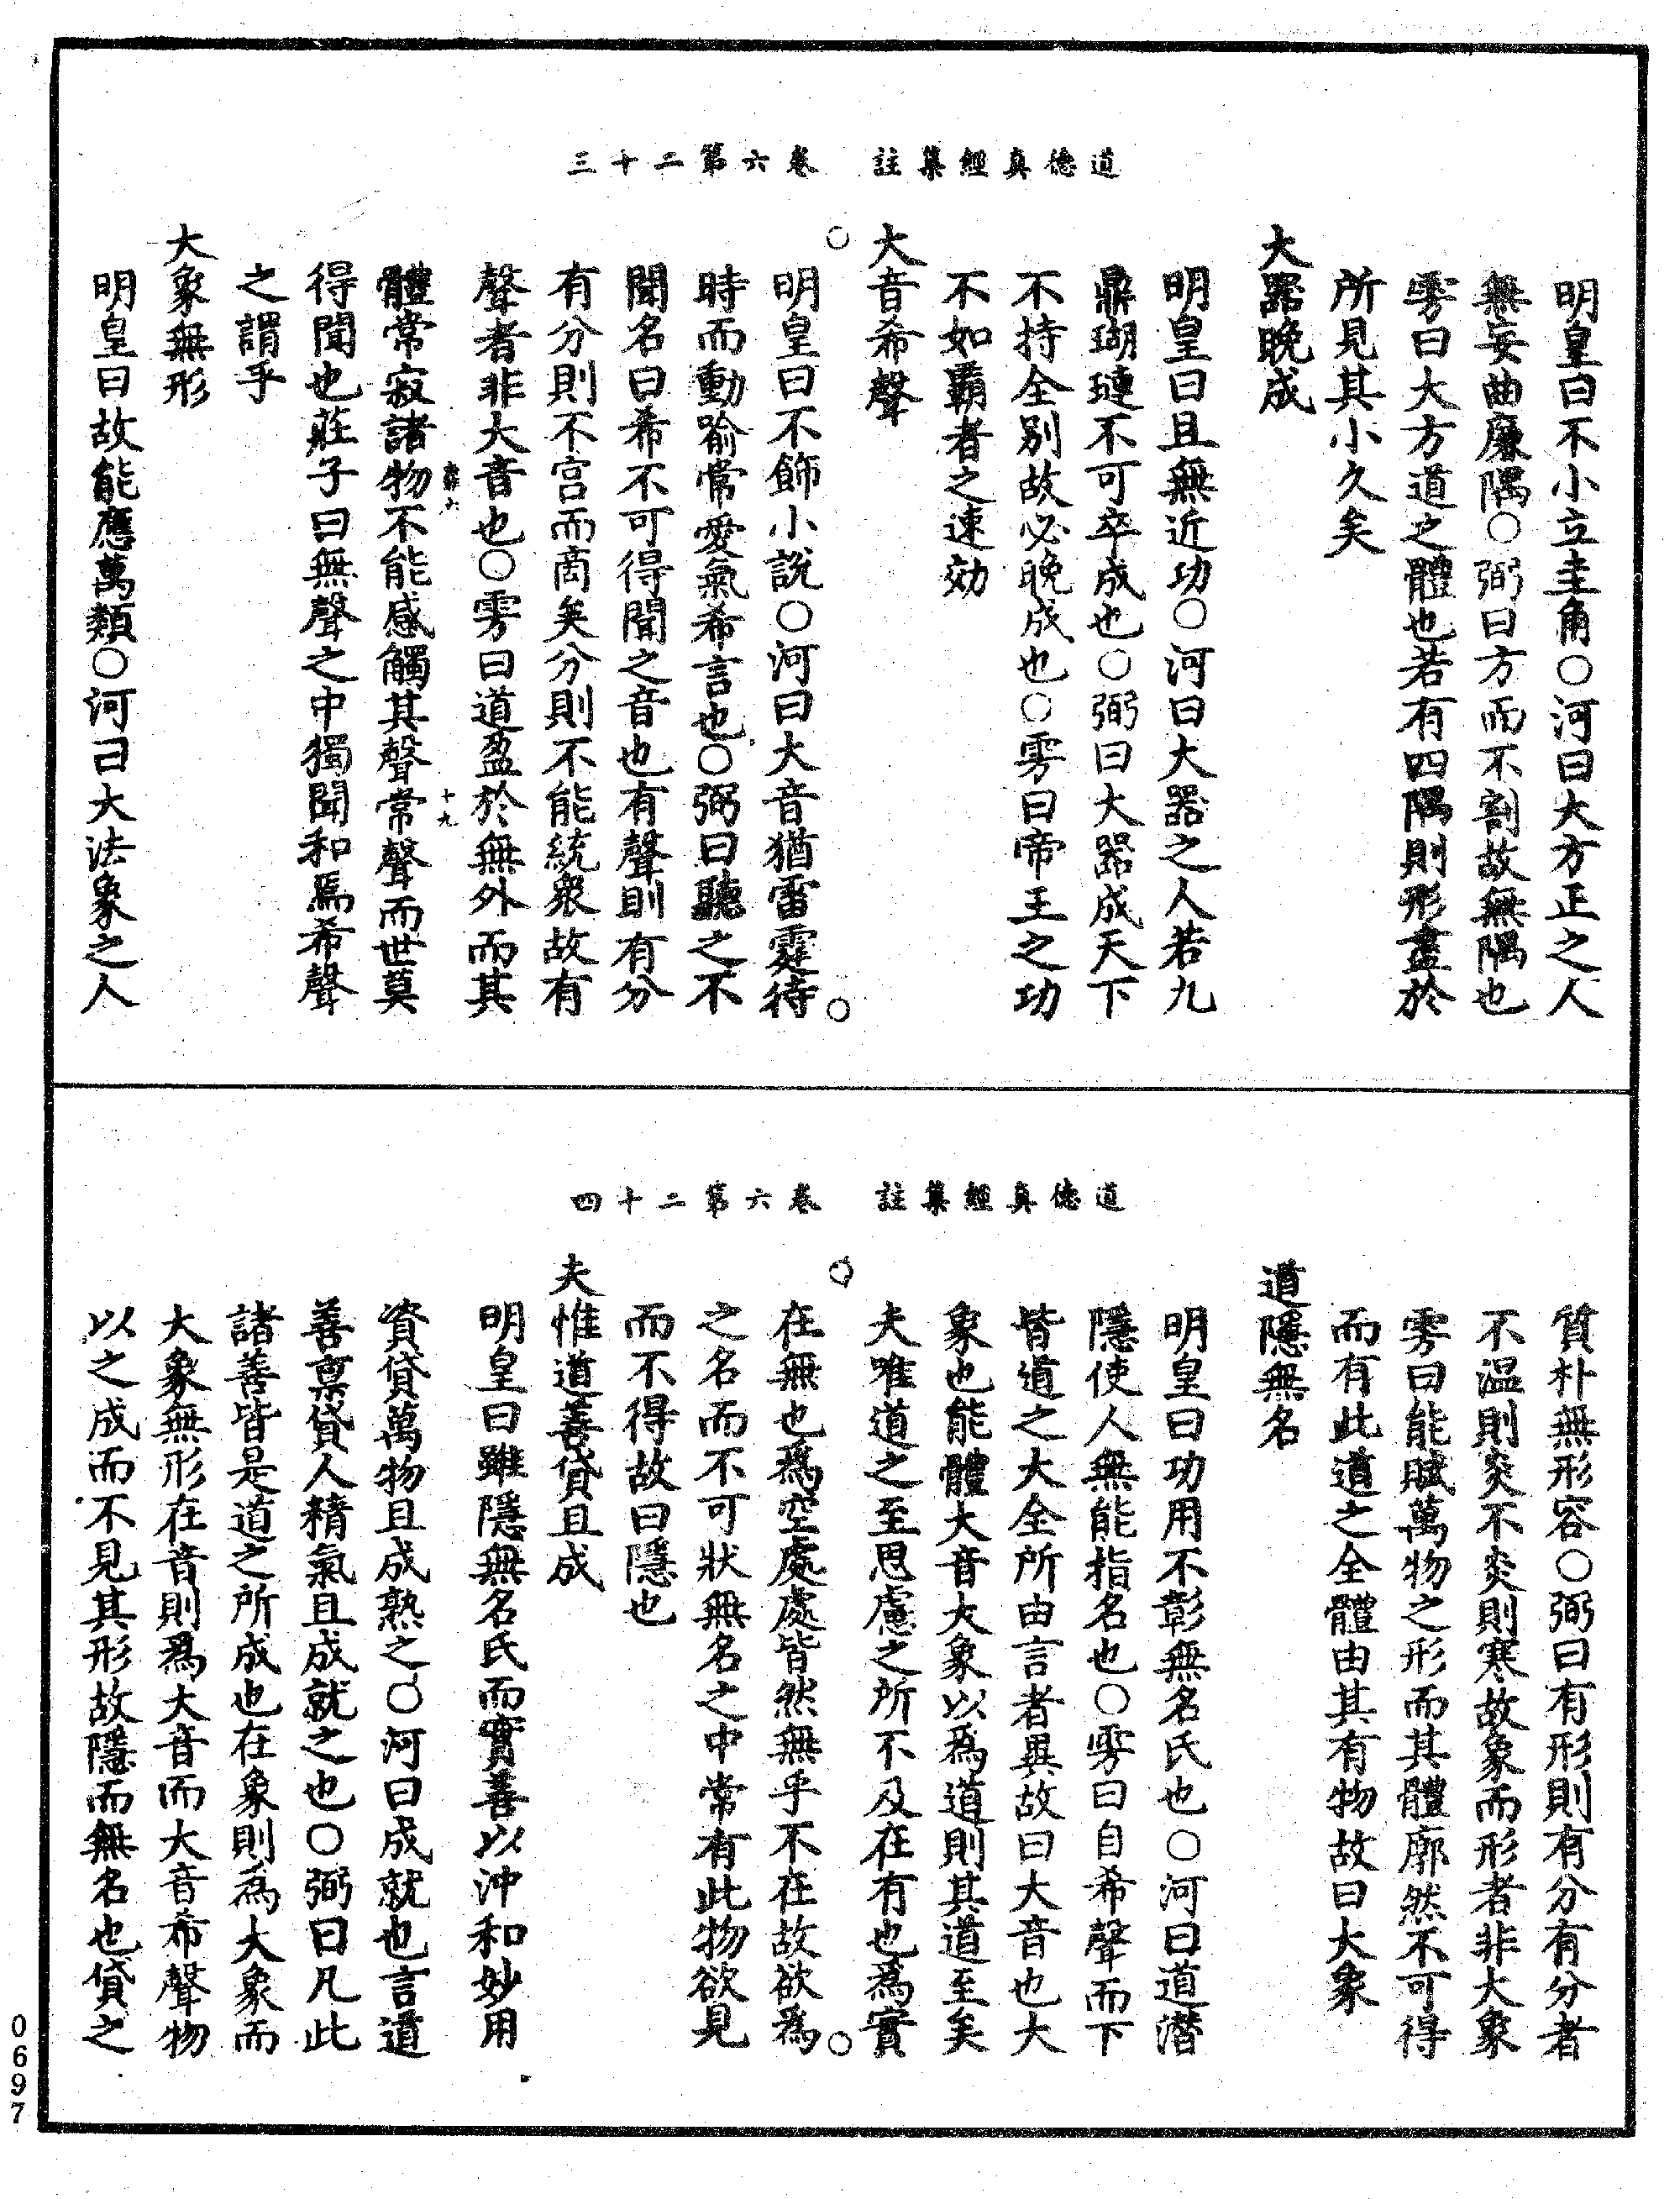 道德真經集註　卷六第二十三
明皇曰不小立圭角○河曰大方正之人
無妄曲廉隅○弼曰方而不割故無隅也
雱曰大方道之體也若有四隅則形盡於
所見其小久矣
大器晚成
明皇曰且無近功○河曰大器之人若九
鼎瑚璉不可卒成也○弼曰大器成天下
不持全別故必晚成也○雱曰帝王之功
不如霸者之速効
大音希聲
明皇曰不飾小說○河曰大音猶雷霆待
時而動喻常愛氣希言也○弼曰聽之不
聞名曰希不可得聞之音也有聲則有分
有分則不宮而商矣分則不能統衆故有
聲者非大音也○雱曰道盈於無外而其
體常寂諸物不能感觸其聲常聲而世莫
十九
得聞也莊子曰無聲之中獨聞和焉希聲
之謂乎
大象無形
明皇曰故能應萬類○河曰大法象之人
道德真經集註　卷六第二十四
質朴無形容○弼曰有形則有分有分者
不温則炎不炎則寒故象而形者非大象
雱曰能賦萬物之形而其體廓然不可得
而有此道之全體由其有物故曰大象
道隱無名
明皇曰功用不彰無名氏也○河曰道潛
隱使人無能指名也○雱曰自希聲而下
皆道之大全所由言者異故曰大音也大
象也能體大音大象以為道則其道至矣
夫唯道之至思慮之所不及在有也為實
在無也為空處處皆然無乎不在故欲為
之名而不可狀無名之中常有此物欲見
而不得故曰隱也
夫惟道善貸且成
明皇曰雖隱無名氏而實善以沖和妙用
資貸萬物且成熟之○河曰成就也言道
善稟貸人精氣且成就之也○弼曰凡此
諸善皆是道之所成也在象則為大象而
大象無形在音則為大音而大音希聲物
以之成而不見其形故隱而無名也貸之
0697